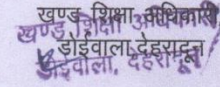 खण्ड शिक्षा अधिकारी
डोईवाला देहरादून
खण्ड शिक्षा अधिकारी
डोईवाला, देहरादून